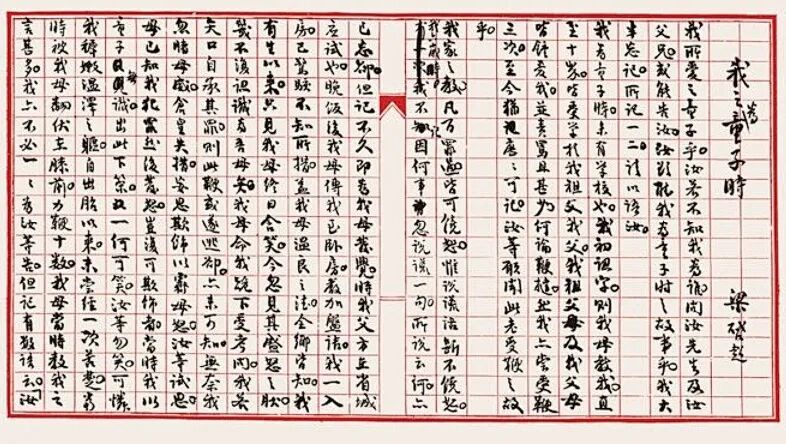 我之為童子時　梁啓超
我所愛之童子乎。汝若不知我為誰。問汝先生及汝
父兄。或能告汝。汝欲聽我為童子時之故事乎。我大
半忘記。所記一二。請以語汝。
我為童子時。未有學校也。我初識字。則我母教我。直
至十歲。皆受學於我祖父我父。我祖父母及我父母
皆鍾愛我。並責罵且甚少。何論鞭撻。然我亦嘗受鞭
三次。至今猶歷歷可記。汝等願聞此老受鞭之故
乎。
我家之教。凡百罪過皆可饒恕。惟說謊話。斯不饒恕。
我六歲時。不記因何事。忽說謊一句。所說云何。亦
已忘卻。但記不久即為我母發覺。時我父方在省城
應試也。晚飯後。我母傳我至臥房。嚴加盤詰。我一入
房。已驚駭不知所措。蓋我母溫良之德。全鄉皆知。我
有生以來。只見我母終日含笑。今忽見其盛怒之狀。
幾不復認識為吾母矣。我母命我跪下受考問。我若
矢口自承其罪。則此鞭或遂逃卻。亦未可知。無奈我
忽睹母威。倉皇失措。妄思欺飾以霽母怒。汝等試思。
母已知我犯罪。然後發怒。豈復可欺飾者。當時我以
童子無識。出此下策。一何可笑。汝等勿笑。可憐
我稚嫩溫澤之軀。自出胎以來。未嘗經一次苦楚。當
時被我母翻伏在膝前。力鞭十數。我母當時教我之
言甚多。我亦不必一一為汝等告。但記有數語云。汝